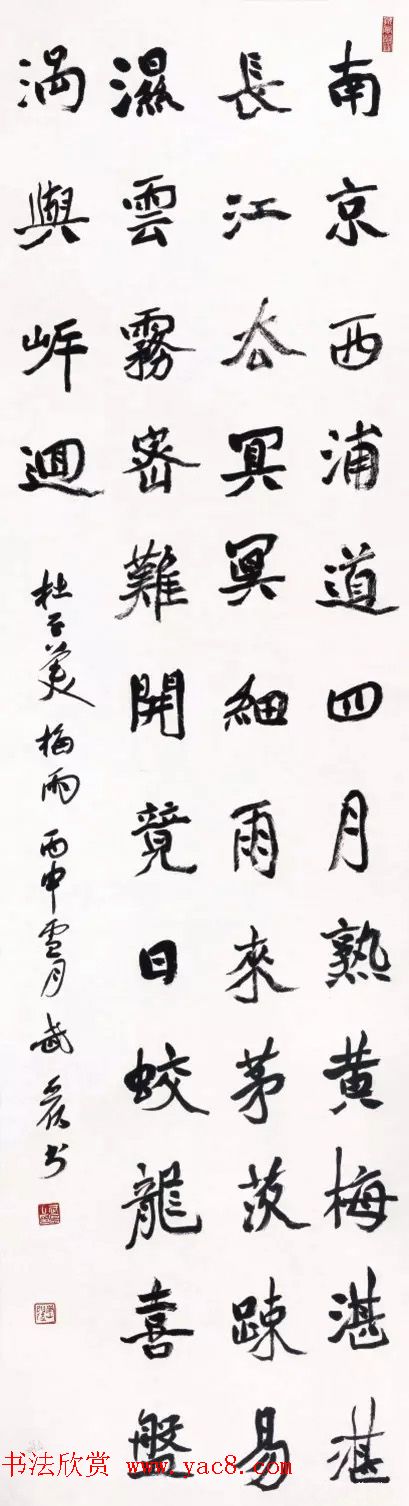 南京西浦道四月熟黄梅湛湛
長江去冥冥細雨來茅茨踈易
濕雲霧密難開竟日蛟龍喜盤
渦與岸迴
杜子美梅雨 丙申雪月 武 书
书法欣赏 www.yac8.com